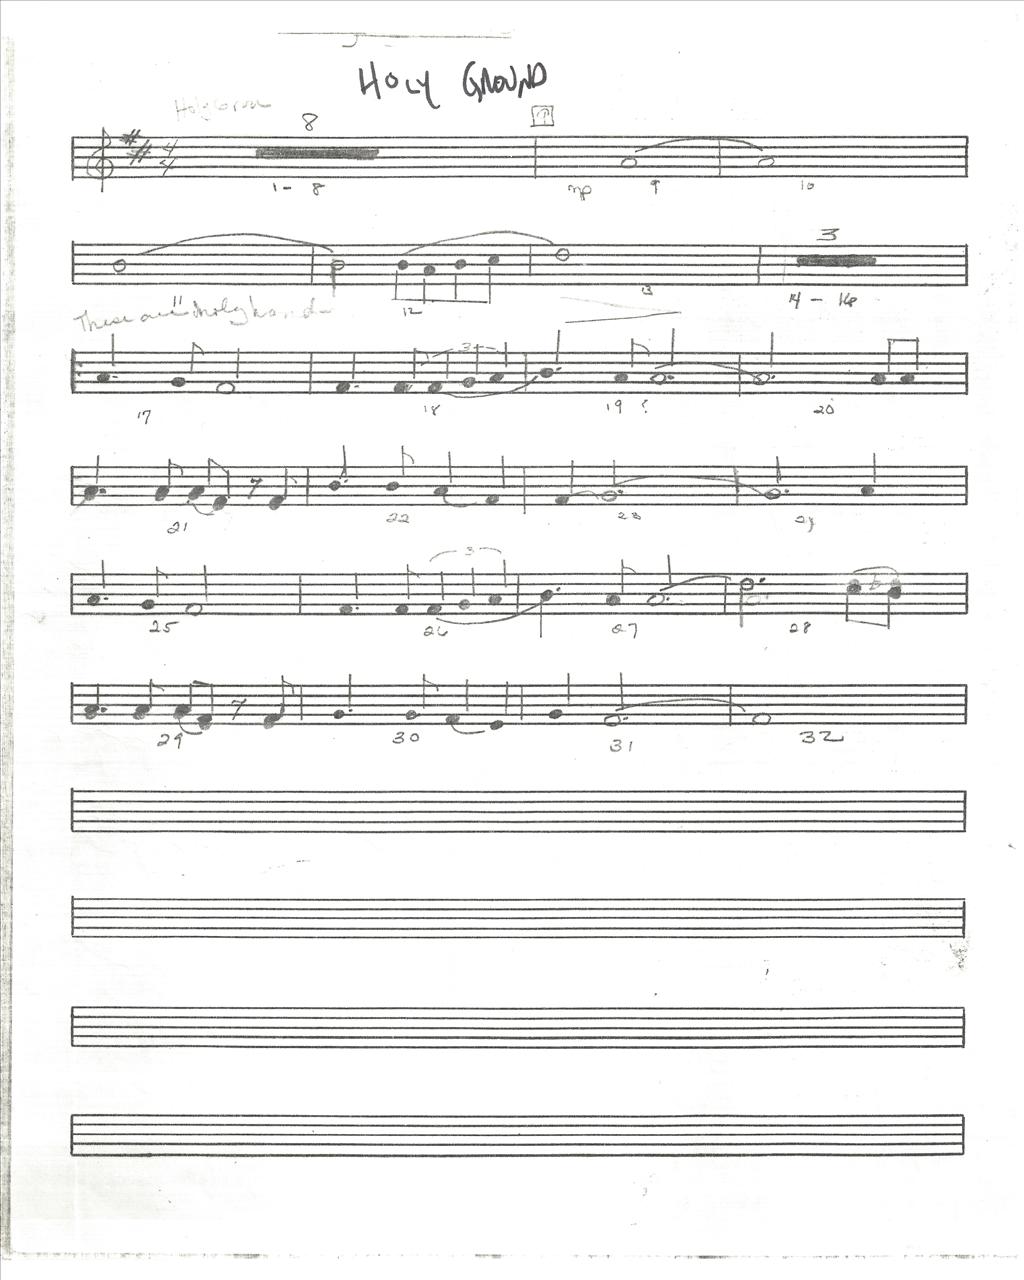 HOLY GROUND
8
4
4
1 - 8
mp 9 10
3
12 13 14 - 16
These are holy hands
3
17 18 19 ? 20
21 22 23 24
3
25 26 27 28
29 30 31 32